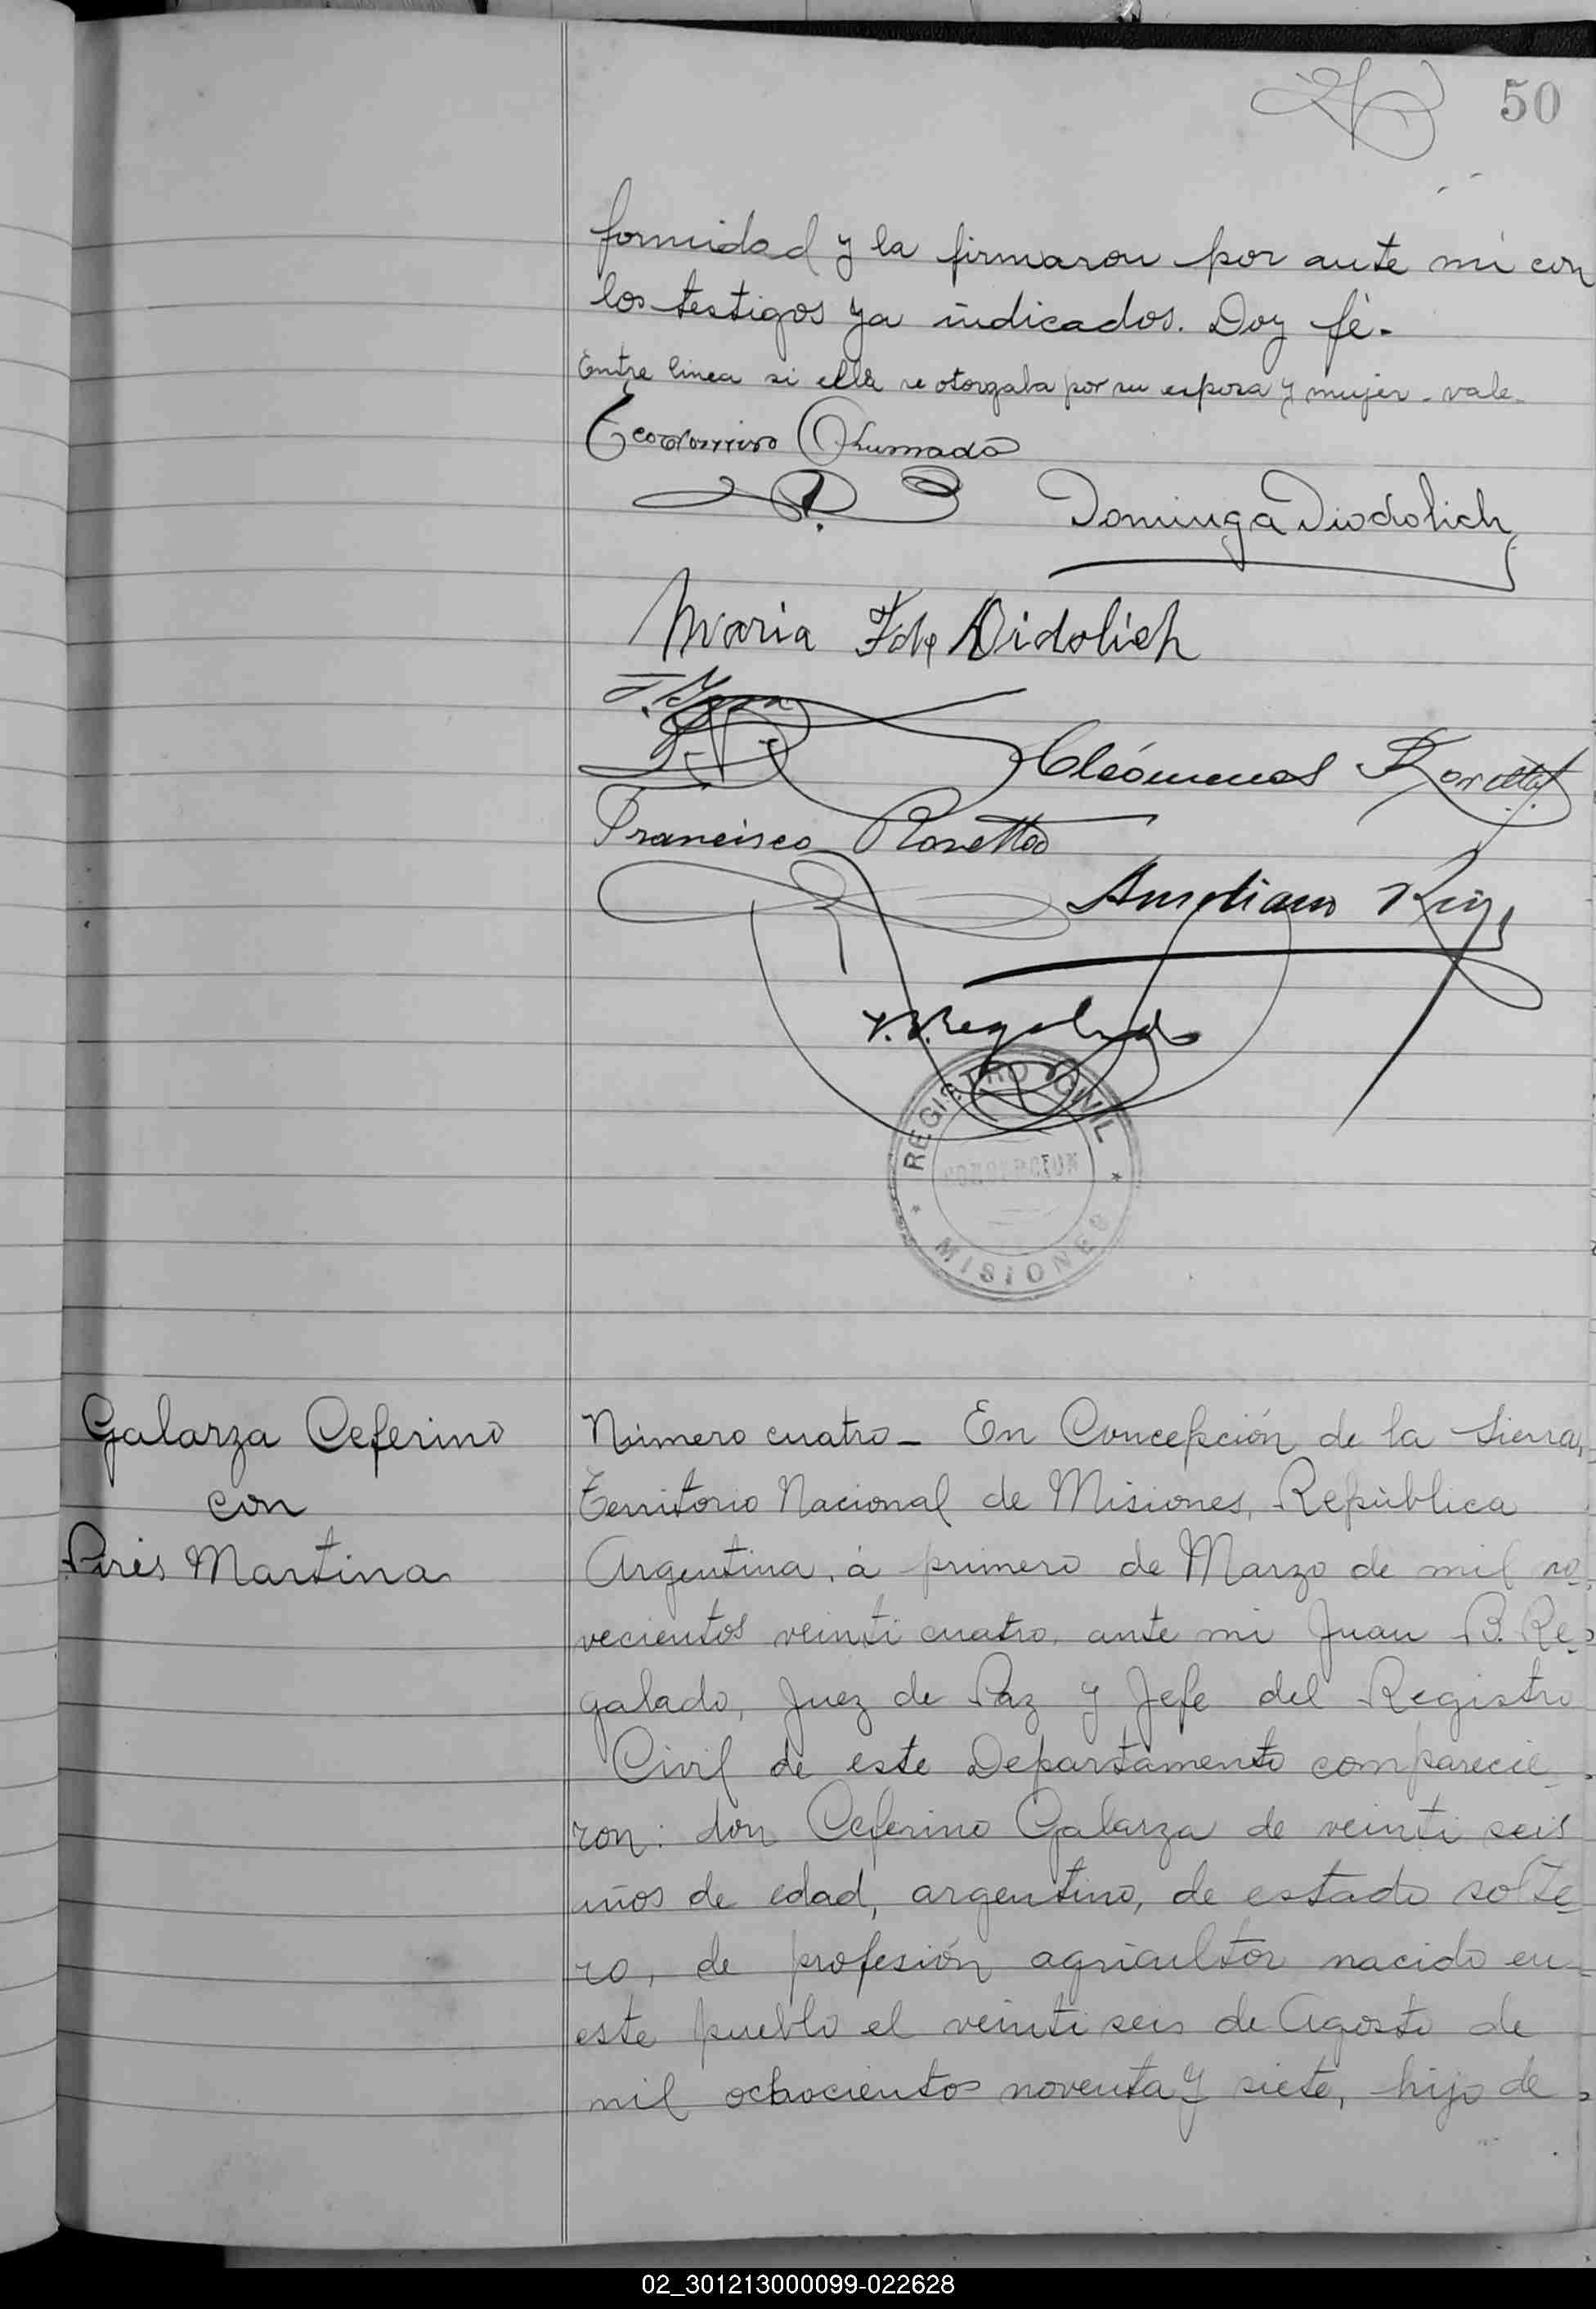 50
formidad y la firmaron por ante mi con
los testigos ya indicados. Doy fé.
Entre linea si ella se otorgaba por su esposa y mujer - vale -
Teodomiro Ahumada
Dominga Diodolich
Maria F de Didolich
Cleómenes Rosetti
Francisco Rosetto
Aureliano
J. B. Regalado
REGISTRO CIVIL
MISIONES
Galarza Ceferino
con
Pires Martina
Número cuatro - En Concepción de la Sierra,
Territorio Nacional de Misiones, República
Argentina, á primero de Marzo de mil no-
vecientos veinti cuatro, ante mi Juan B. Re-
galado, Juez de Paz y Jefe del Registro
Civil de este Departamento comparecie-
ron: don Ceferino Galarza de veinti seis
años de edad, argentino, de estado solte-
ro, de profesión agricultor nacido en
este pueblo el veinti seis de Agosto de
mil ochocientos noventa y siete, hijo de
02_301213000099-022628